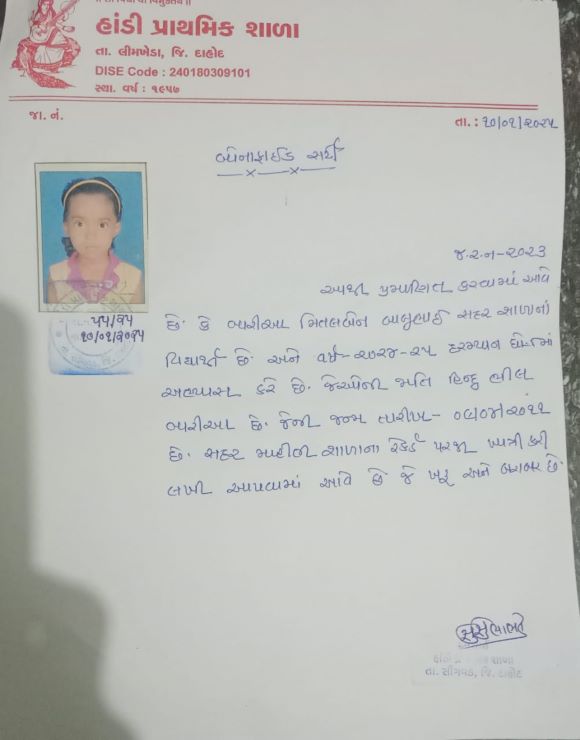 હાંડી પ્રાથમિક શાળા
તા. લીમખેડા, જિ. દાહોદ
DISE Code : 240180309101
સ્થા. વર્ષ : ૧૯૫૭
જા. નં.
તા. : ૧૦/૦૧/૨૦૨૫
બોનાફાઈડ સર્ટી
જ.ર.ન - ૨૦૨૩
આથી પ્રમાણિત કરવામાં આવે
છે. કે બારીઆ મિતલબેન બાબુભાઈ સદર શાળાનાં
વિદ્યાર્થી છે. અને વર્ષ - ૨૦૨૪-૨૫ દરમ્યાન ધોરણમાં
અભ્યાસ કરે છે. જેઓની જાતિ હિન્દુ ભીલ
બારીઆ છે. જેની જન્મ તારીખ -
છે. સદર માહિતી શાળાના રેકર્ડ પરથી ખાત્રી કરી
લખી આપવામાં આવે છે જે ખરૂ અને બરાબર છે
તા. સીંગવડ, જિ. દાહોદ